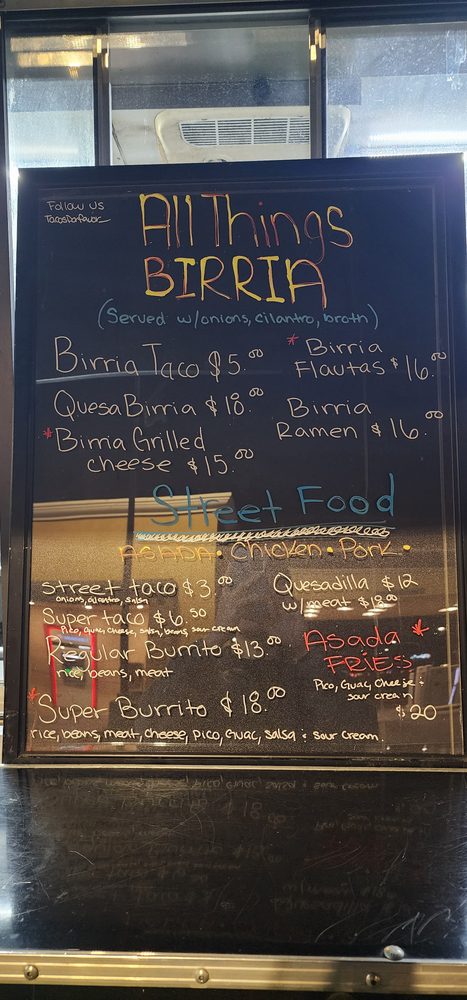 Follow us
TacosPorfavor
All Things
BIRRIA
(Served w/onions, cilantro, broth)
Birria Taco $5.00
QuesaBirria $18.00
*Birria Grilled
cheese $15.00
*Birria
Flautas $16.00
Birria
Ramen $16.00
Street Food
ASADA • Chicken • Pork •
street taco $3.00
onions, cilantro, salsa
Super taco $6.50
Pico, Guac, cheese, salsa, beans, sour cream
Regular Burrito $13.00
rice, beans, meat
Quesadilla $12
w/meat $18.00
Asada *
FRIES
Pico, Guac, Cheese &
sour cream
$20
*Super Burrito $18.00
rice, beans, meat, cheese, pico, Guac, salsa & sour cream.